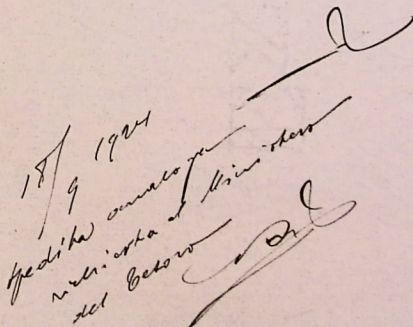 18/9 1924
spedita analoga
richiesta al Ministero
del Tesoro